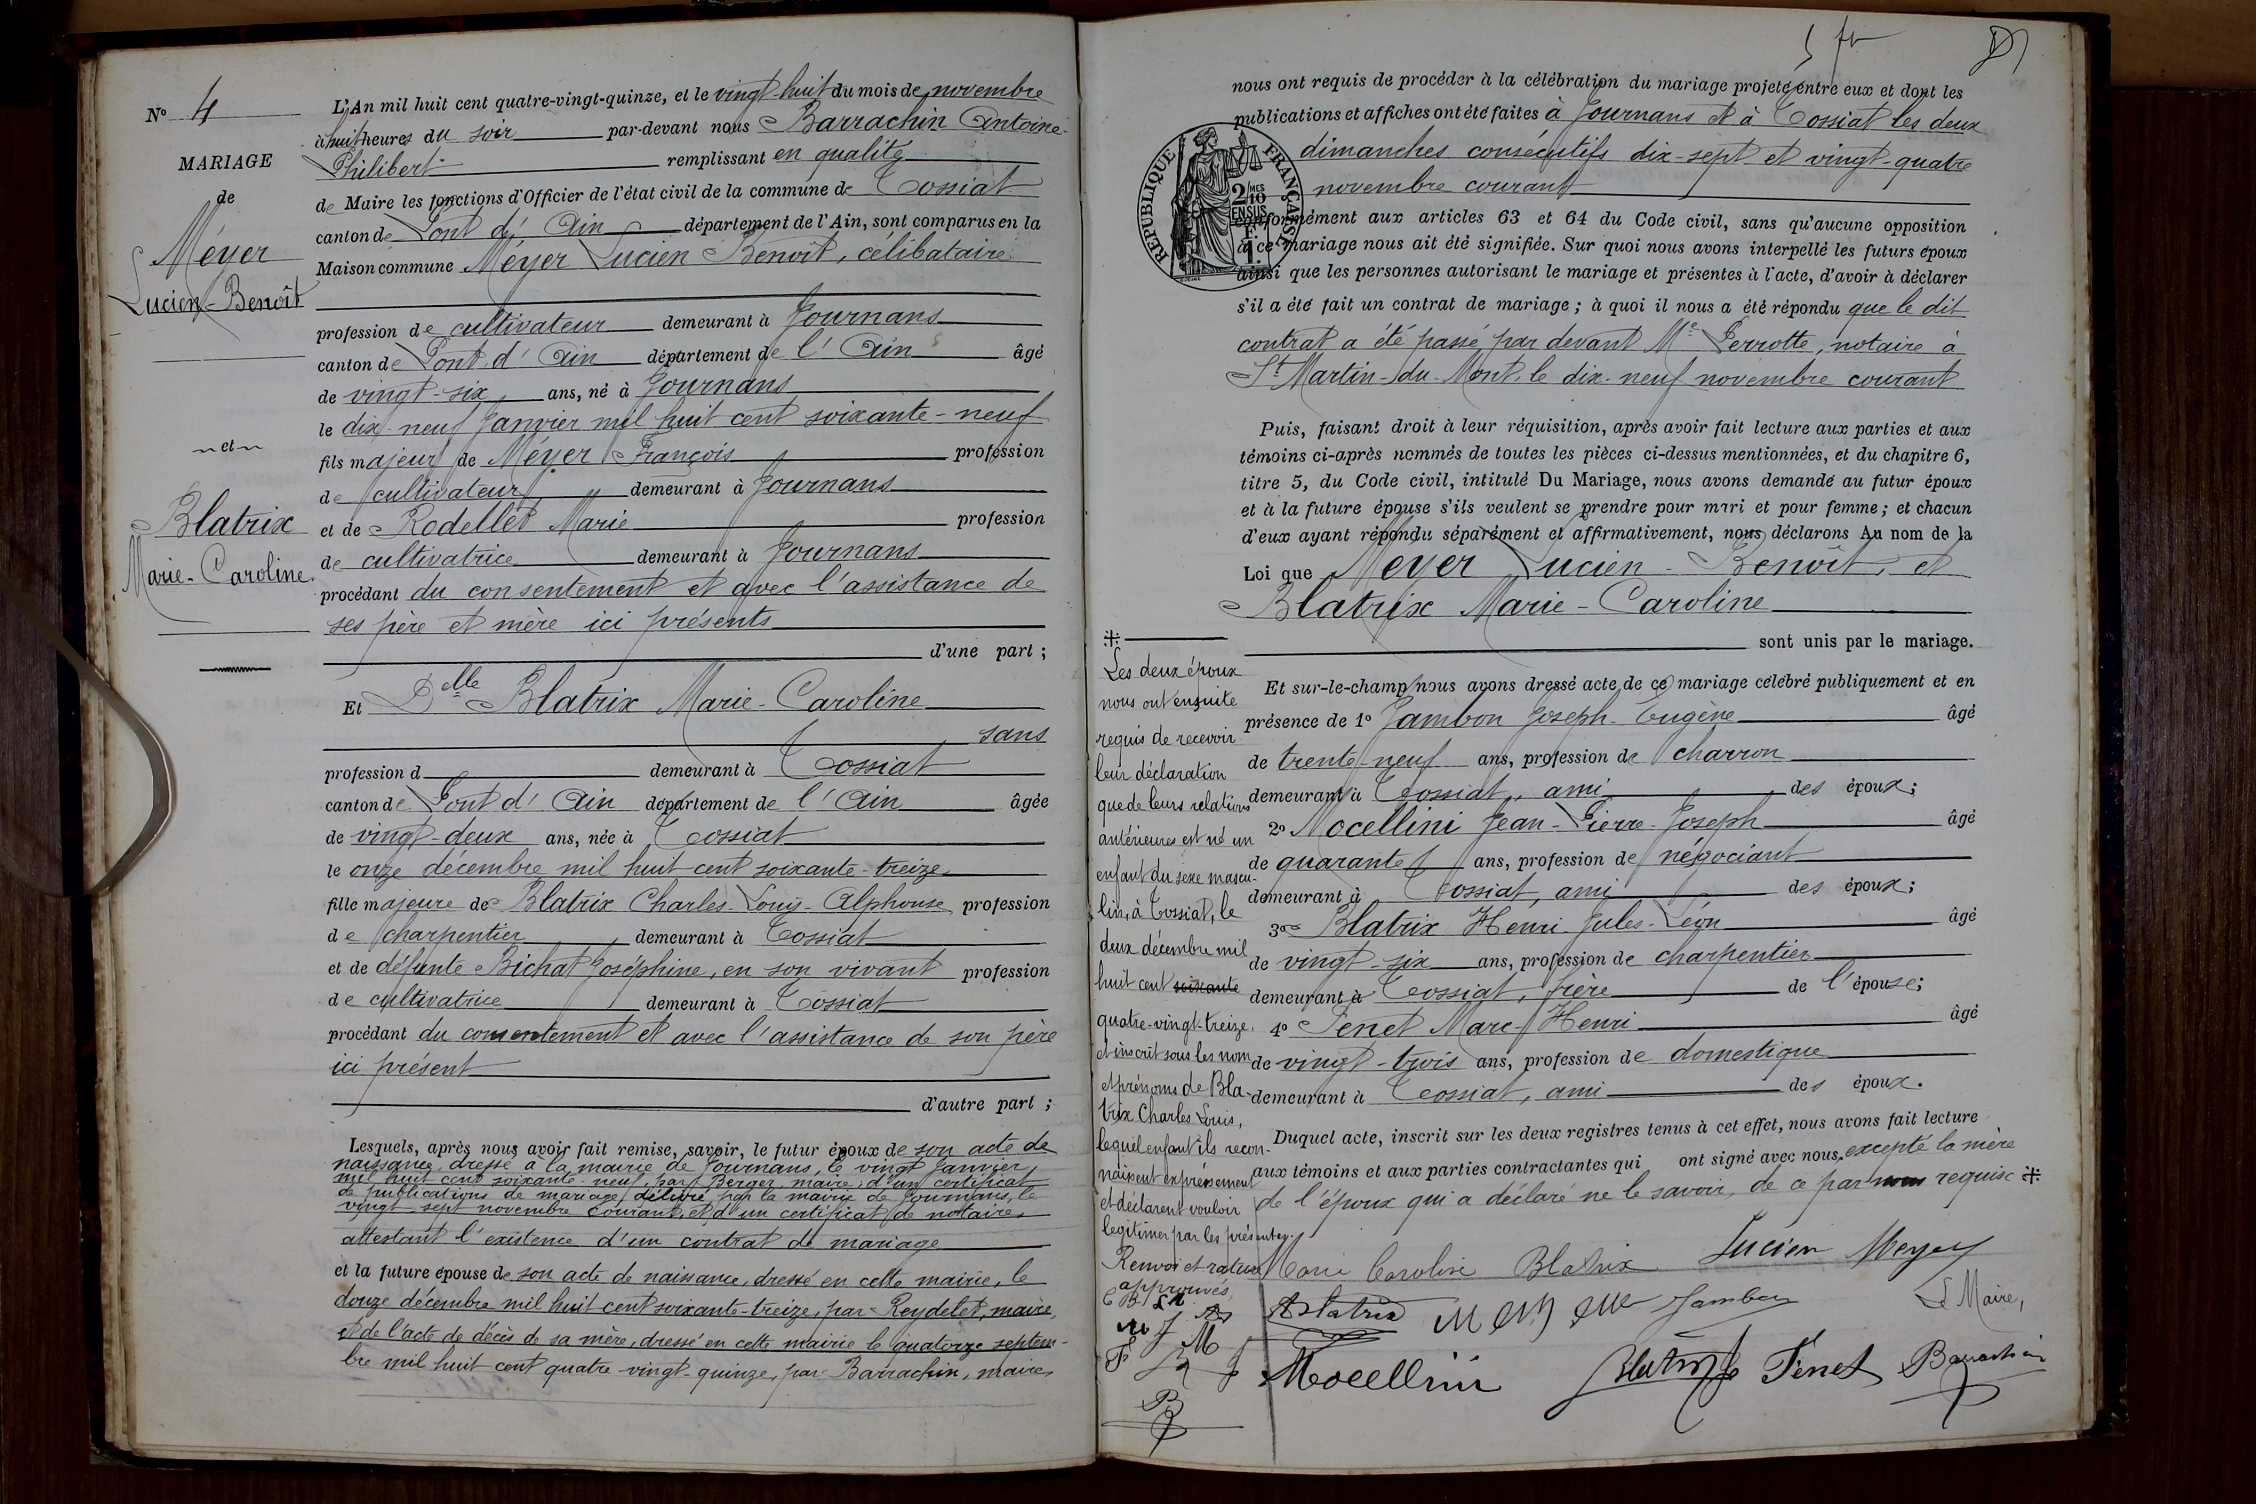 No 4
MARIAGE
de
Méyer
Lucien-Benoît
et
Blatrix
Marie-Caroline.
L'An mil huit cent quatre-vingt-quinze, et le vingt-huit du mois de novembre
à huit heures du soir par-devant nous Barrachin Antoine-
Philibert remplissant en qualité
de Maire les fonctions d'Officier de l'état civil de la commune de Tossiat
canton de Pont d'Ain département de l'Ain, sont comparus en la
Maison commune Méyer Lucien Benoît, célibataire
profession de cultivateur demeurant à Journans
canton de Pont d'Ain département de l'Ain âgé
de vingt-six ans, né à Journans
le dix-neuf Janvier mil huit cent soixante-neuf
fils majeur de Méyer François profession
de cultivateur demeurant à Journans
et de Rodellet Marie profession
de cultivatrice demeurant à Journans
procédant du consentement et avec l'assistance de
ses père et mère ici présents
d'une part;
Et Delle Blatrix Marie-Caroline
sans
profession d demeurant à Tossiat
canton de Pont d'Ain département de l'Ain âgée
de vingt-deux ans, née à Tossiat
le onze décembre mil huit cent soixante-treize
fille majeure de Blatrix Charles-Louis-Alphonse profession
de charpentier demeurant à Tossiat
et de défunte Bichat Joséphine, en son vivant profession
de cultivatrice demeurant à Tossiat
procédant du consentement et avec l'assistance de son père
ici présent
d'autre part;
Lesquels, après nous avoir fait remise, savoir, le futur époux de son acte de
naissance, dressé à la mairie de Journans, le vingt Janvier
mil huit cent soixante-neuf, par Berger, maire; d'un certificat
de publications de mariage, délivré par la mairie de Journans, le
vingt-sept novembre courant, et d'un certificat de notaire,
attestant l'existence d'un contrat de mariage
et la future épouse de son acte de naissance, dressé en cette mairie, le
douze décembre mil huit cent soixante-treize, par Reydelet, maire,
et de l'acte de décès de sa mère, dressé en cette mairie le quatorze septem-
bre mil huit cent quatre-vingt-quinze, par Barrachin, maire,
nous ont requis de procéder à la célébration du mariage projeté entre eux et dont les
publications et affiches ont été faites à Journans et à Tossiat les deux
dimanches consécutifs dix-sept et vingt-quatre
novembre courant
RÉPUBLIQUE FRANÇAISE
2/10MES
EN SUS
conformément aux articles 63 et 64 du Code civil, sans qu'aucune opposition
à ce mariage nous ait été signifiée. Sur quoi nous avons interpellé les futurs époux
ainsi que les personnes autorisant le mariage et présentes à l'acte, d'avoir à déclarer
s'il a été fait un contrat de mariage; à quoi il nous a été répondu que le dit
contrat a été passé par devant Me Perrotte, notaire à
St Martin-du-Mont, le dix-neuf novembre courant
Puis, faisant droit à leur réquisition, après avoir fait lecture aux parties et aux
témoins ci-après nommés de toutes les pièces ci-dessus mentionnées, et du chapitre 6,
titre 5, du Code civil, intitulé Du Mariage, nous avons demandé au futur époux
et à la future épouse s'ils veulent se prendre pour mari et pour femme; et chacun
d'eux ayant répondu séparément et affirmativement, nous déclarons Au nom de la
Loi que Meyer Lucien-Benoît, et
Blatrix Marie-Caroline
sont unis par le mariage.
Et sur-le-champ nous avons dressé acte de ce mariage célébré publiquement et en
présence de 1o Jambon Joseph-Eugène âgé
de trente-neuf ans, profession de charron
demeurant à Tossiat, ami des époux;
2o Mocellini Jean-Pierre-Joseph âgé
de quarante ans, profession de négociant
demeurant à Tossiat, ami des époux;
3o Blatrix Henri-Jules-Léon âgé
de vingt-six ans, profession de charpentier
demeurant à Tossiat, frère de l'épouse;
4o Tenet Marc-Henri âgé
de vingt-trois ans, profession de domestique
demeurant à Tossiat, ami des époux.
Duquel acte, inscrit sur les deux registres tenus à cet effet, nous avons fait lecture
aux témoins et aux parties contractantes qui ont signé avec nous, excepté la mère
de l'époux qui a déclaré ne le savoir, de ce par nous requise
Les deux époux
nous ont ensuite
requis de recevoir
leur déclaration
que de leurs relations
antérieures est né un
enfant du sexe mascu-
lin, à Tossiat, le
deux décembre mil
huit cent soixante
quatre-vingt-treize,
et inscrit sous les nom
et prénoms de Bla-
trix Charles Louis,
lequel enfant ils recon-
naissent expressément
et déclarent vouloir
legitimer par les présentes.
Renvoi et rature
approuvés,
Marie Caroline Blatrix Lucien Meyer
ABlatrix Jambon
Le Maire,
Mocellini Blatrix Tenet Barrachin